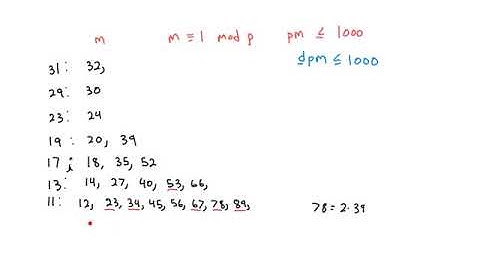 m m ≡ 1 mod p pm ≤ 1000
dpm ≤ 1000
31: 32,
29: 30
23: 24
19: 20, 39
17: 18, 35, 52
13: 14, 27, 40, 53, 66,
11: 12, 23, 34, 45, 56, 67, 78, 89, 78 = 2·39